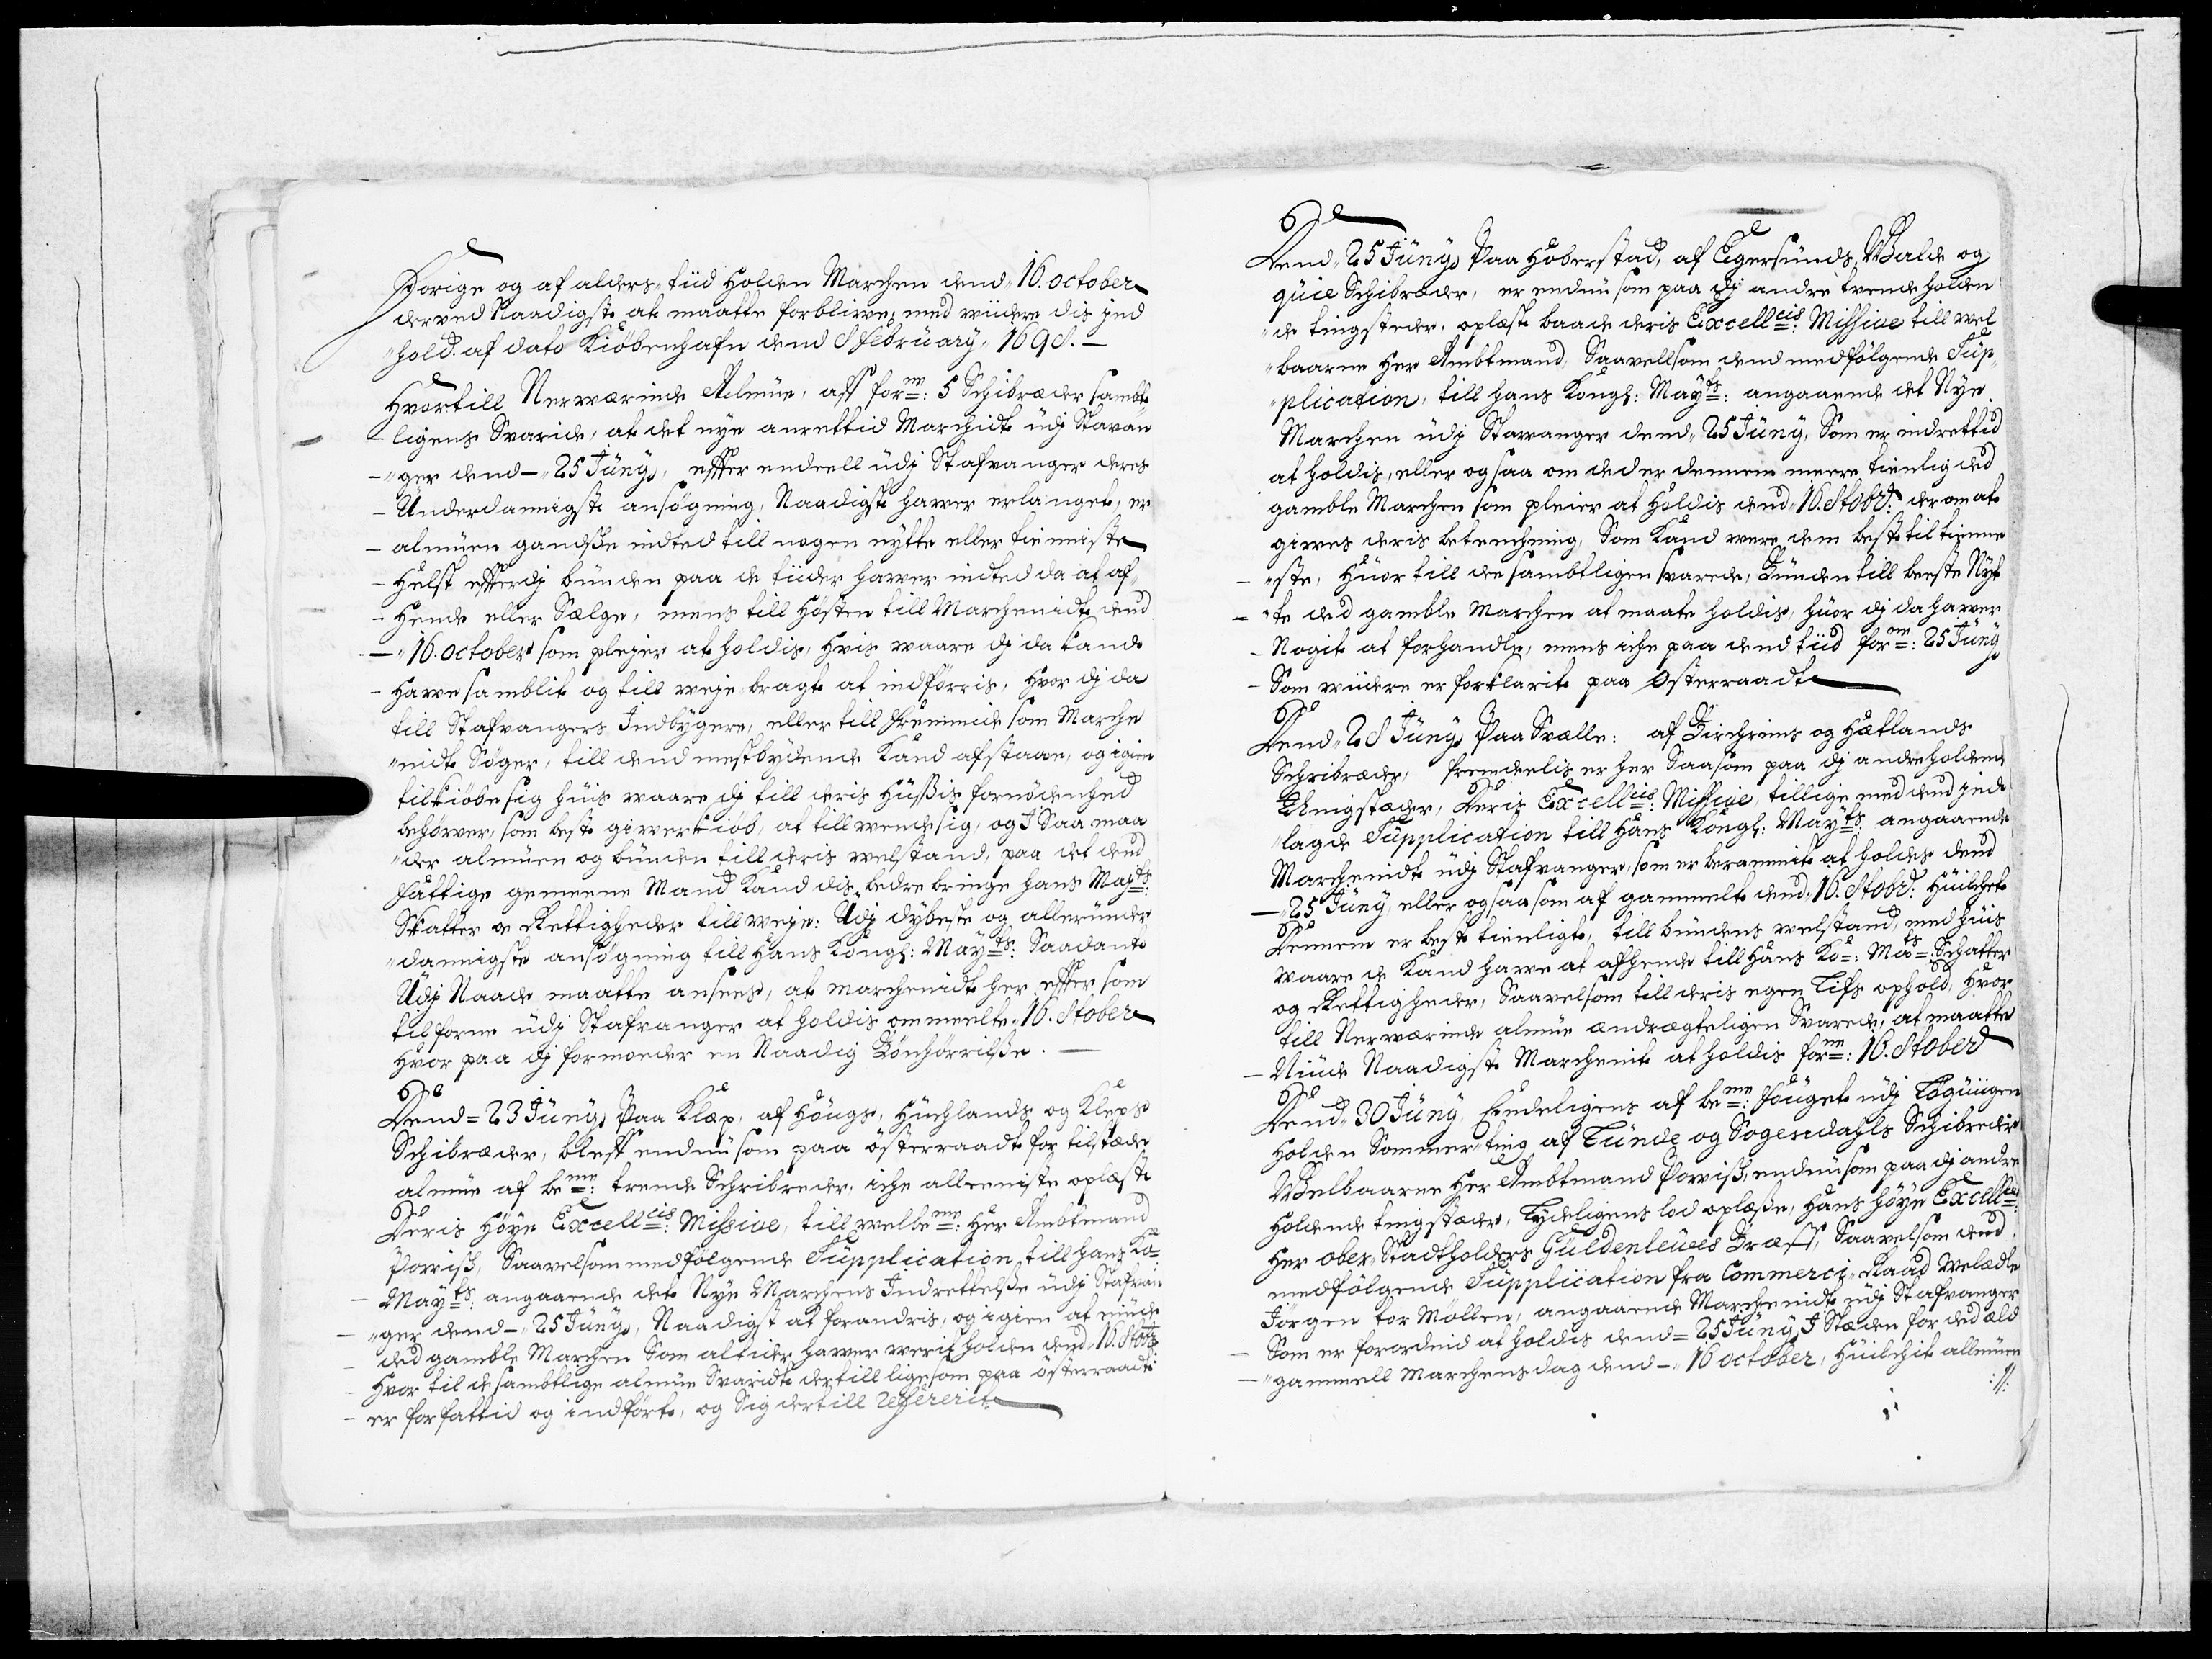 Forige og af alders tiid holden Marchen dend 16. october
derved Naadigste at maatte forblifve, med viidere dis jnd
"hold. af dato Kiøbenhafn dend 8 february, 1698. —
Hvortill Nerværinde Almüe, aff for=ne: 5 Schibræder sambt
- ligens Svaride, at det nye anrettid Marchidt üdj Stavan
- "ger dend — "25 Jünÿ, effter endeell üdj Stafvanger deres
- Ünderdannigste ansøgning, Naadigst hafver erlanget, er
- almüen gandsche indted till nogen nytte eller tienniste
- Helst effterdj bünden paa de tiider hafver indted da at af
- Hende eller Sælge, mens till Høsten till Marchenidt dend
- "16. october som plejer at holdis, hvis vaare dj da kand
- hafve samblit og till veje bragt at indførris, hvor dj da
till Stafvangers Indbÿgere, eller till fremmide som Marche
"nidt Søger, till dend mestbydende kand afstaae, og igien
tilkiøbe sig hüis vaare dj till deris hüssis fornødenhed
behøfver, som best gifver kiøb, at tillvende sig, og J Saa maa
"der almüen og bünden till deris velstand, paa det dend
fattige gemeene Mand kand dis bedre bringe hans May=ts:
Skatter oc Rettigheder till veje: Üdj dybeste og alleründer
"dannigste ansøgning till Hans Kongl: May=ts: Saadant
Üdj Naade maatte ansees, at marchenidt her effter som
tilforne üdj Stafvanger at holdis ommeelte 16. 8tober
Hvor paa dj formoeder en Naadig Bönhörrilsse. —
Dend = 23 Jünÿ, Paa Klæp, af Høugs, Hüchlands og Kleps
Schibræder, bleff endnü som paa österraadt for tilstæde
almüe af be=me: trende Schibreder, iche alleeniste oplæst
Deris Høye Excell=cis: Missive, till velbe=me: Her Ambtmand
Povisch, Saavelsom medfølgende Süpplication till hans Ko=
- May=ts: angaaende det Nye Marchens Indrettelsse üdj Stafvan
- "ger dend — 25 Jünÿ, Naadigst at forandris, og igien at nüde
- ded gamble Marchen Som altider hafver verit holden dend 16. 8tob=
- Hvor til de sambtlige almüe Svaridt dertill ligesom paa österraadt
- er forfattid og indført, og Sig dertill refererit
Dend 25 Jünÿ, Paa Hoberstad, af Egersünds, Walde og
qüie Schibræder, er endnü som paa dj andre trende holden
"de tingsteder, oplæst baade deris Excell=cis: Missive till vel
"baarne Her Ambtmand, Saavellsom dend medfølgende Süp
"plication, till hans Kongl: May=ts: angaaende det Nye
Marchen üdj Stavanger dend 25 Jünÿ, Som er indrettid
at holdis, eller og saa om ded er dennem meere tienlig ded
gamble Marchen som pleier at holdis dend 16. 8tobr: derom at
gifves deris betenchning, Som kand vere dem best til tienne
- "ste, Hüor till de sambtligen svarede, Bünden till beste Nyt
- "te ded gamble Marchen at maate holdis, hüor dj da hafver
- Nogit at forhandle, mens iche paa dend tiid for=ne: 25 Jünÿ
- Som viidere er forklarit paa österraadt
Dend 28 Jünÿ Paa Svalle: af Birchrims og Hætlands
Schribræder, fremdeelis er her Saasom paa dj andre holdend
Thingstæder, Deris Excell=cis: Missive, tillige med dend jnd
"lagde Süpplication till Hans Kongl: May=ts: angaaende
Marchenidt üdj Stafvanger, som er berammit at holdes dend
— "25 Jünÿ, eller og saa som af gammelt dend 16. 8tobr: Hüilchet
Dennem er best tienligt, till bündens velstand, med hüis
vaare de kand hafve at afhende till Hans Ko=: Ma=ts: Schatter
og Rettigheder, Saavelsom till deris egen Lifs ophold, Hvor
till Nerværinde almüe eendrægteligen Svarede, at maatte
- Nüde Naadigst Marchenit at holdis for=ne: 16. 8tober
Dend 30 Jünÿ, Endeligens af be=me: fougit üdj Togüiigen
Holden Sommer ting af Lünde og Sogendahls Schibreder
Welbaarne Her Ambtmand Povisch, endnü som paa dj andre
Holdende tingstæder, Tydeligens lod oplæsse, Hans høye Excell=ces
Her ober Stadtholders Güldenleues Bræff, Saavelsom dend
medfølgende Süpplication fra Commerci Raad Velædle
Jörgen tor Möllen, angaaende Marchenidt üdj Stafvanger
- Som er forordnid at holdis dend = 25 Jünÿ, J Stæden for ded æld
- "gammell Marchensdag dend — 16 october, Hüilchit allmüen
://: